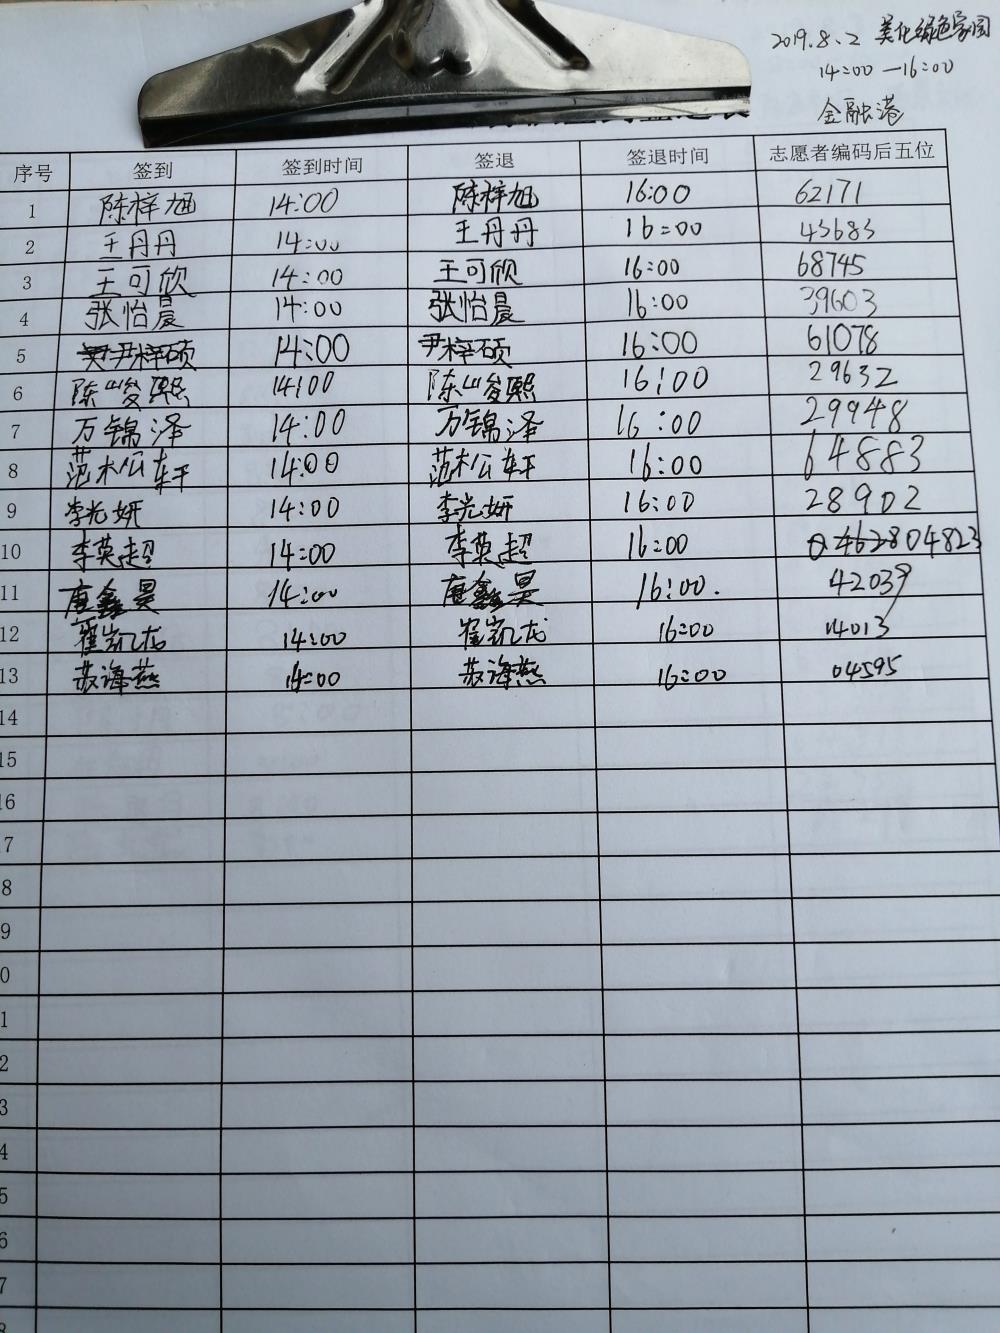 2019.8.2 美化绿色家园
14:00—16:00
金融港
序号 签到 签到时间 签退 签退时间 志愿者编码后五位
1 陈梓旭 14:00 陈梓旭 16:00 62171
2 王丹丹 14:00 王丹丹 16:00 43683
3 王可欣 14:00 王可欣 16:00 68745
4 张怡晨 14:00 张怡晨 16:00 39603
5 尹梓硕 14:00 尹梓硕 16:00 61078
6 陈峻熙 14:00 陈峻熙 16:00 29632
7 万锦泽 14:00 万锦泽 16:00 29948
8 范松轩 14:00 范松轩 16:00 64883
9 李光妍 14:00 李光妍 16:00 28902
10 李英超 14:00 李英超 16:00 04823
11 唐鑫昊 14:00 唐鑫昊 16:00. 42039
12 崔凯龙 14:00 崔凯龙 16:00 14013
13 苏海燕 14:00 苏海燕 16:00 04595
14
15
16
7
8
9
0
1
2
3
4
5
6
7
8